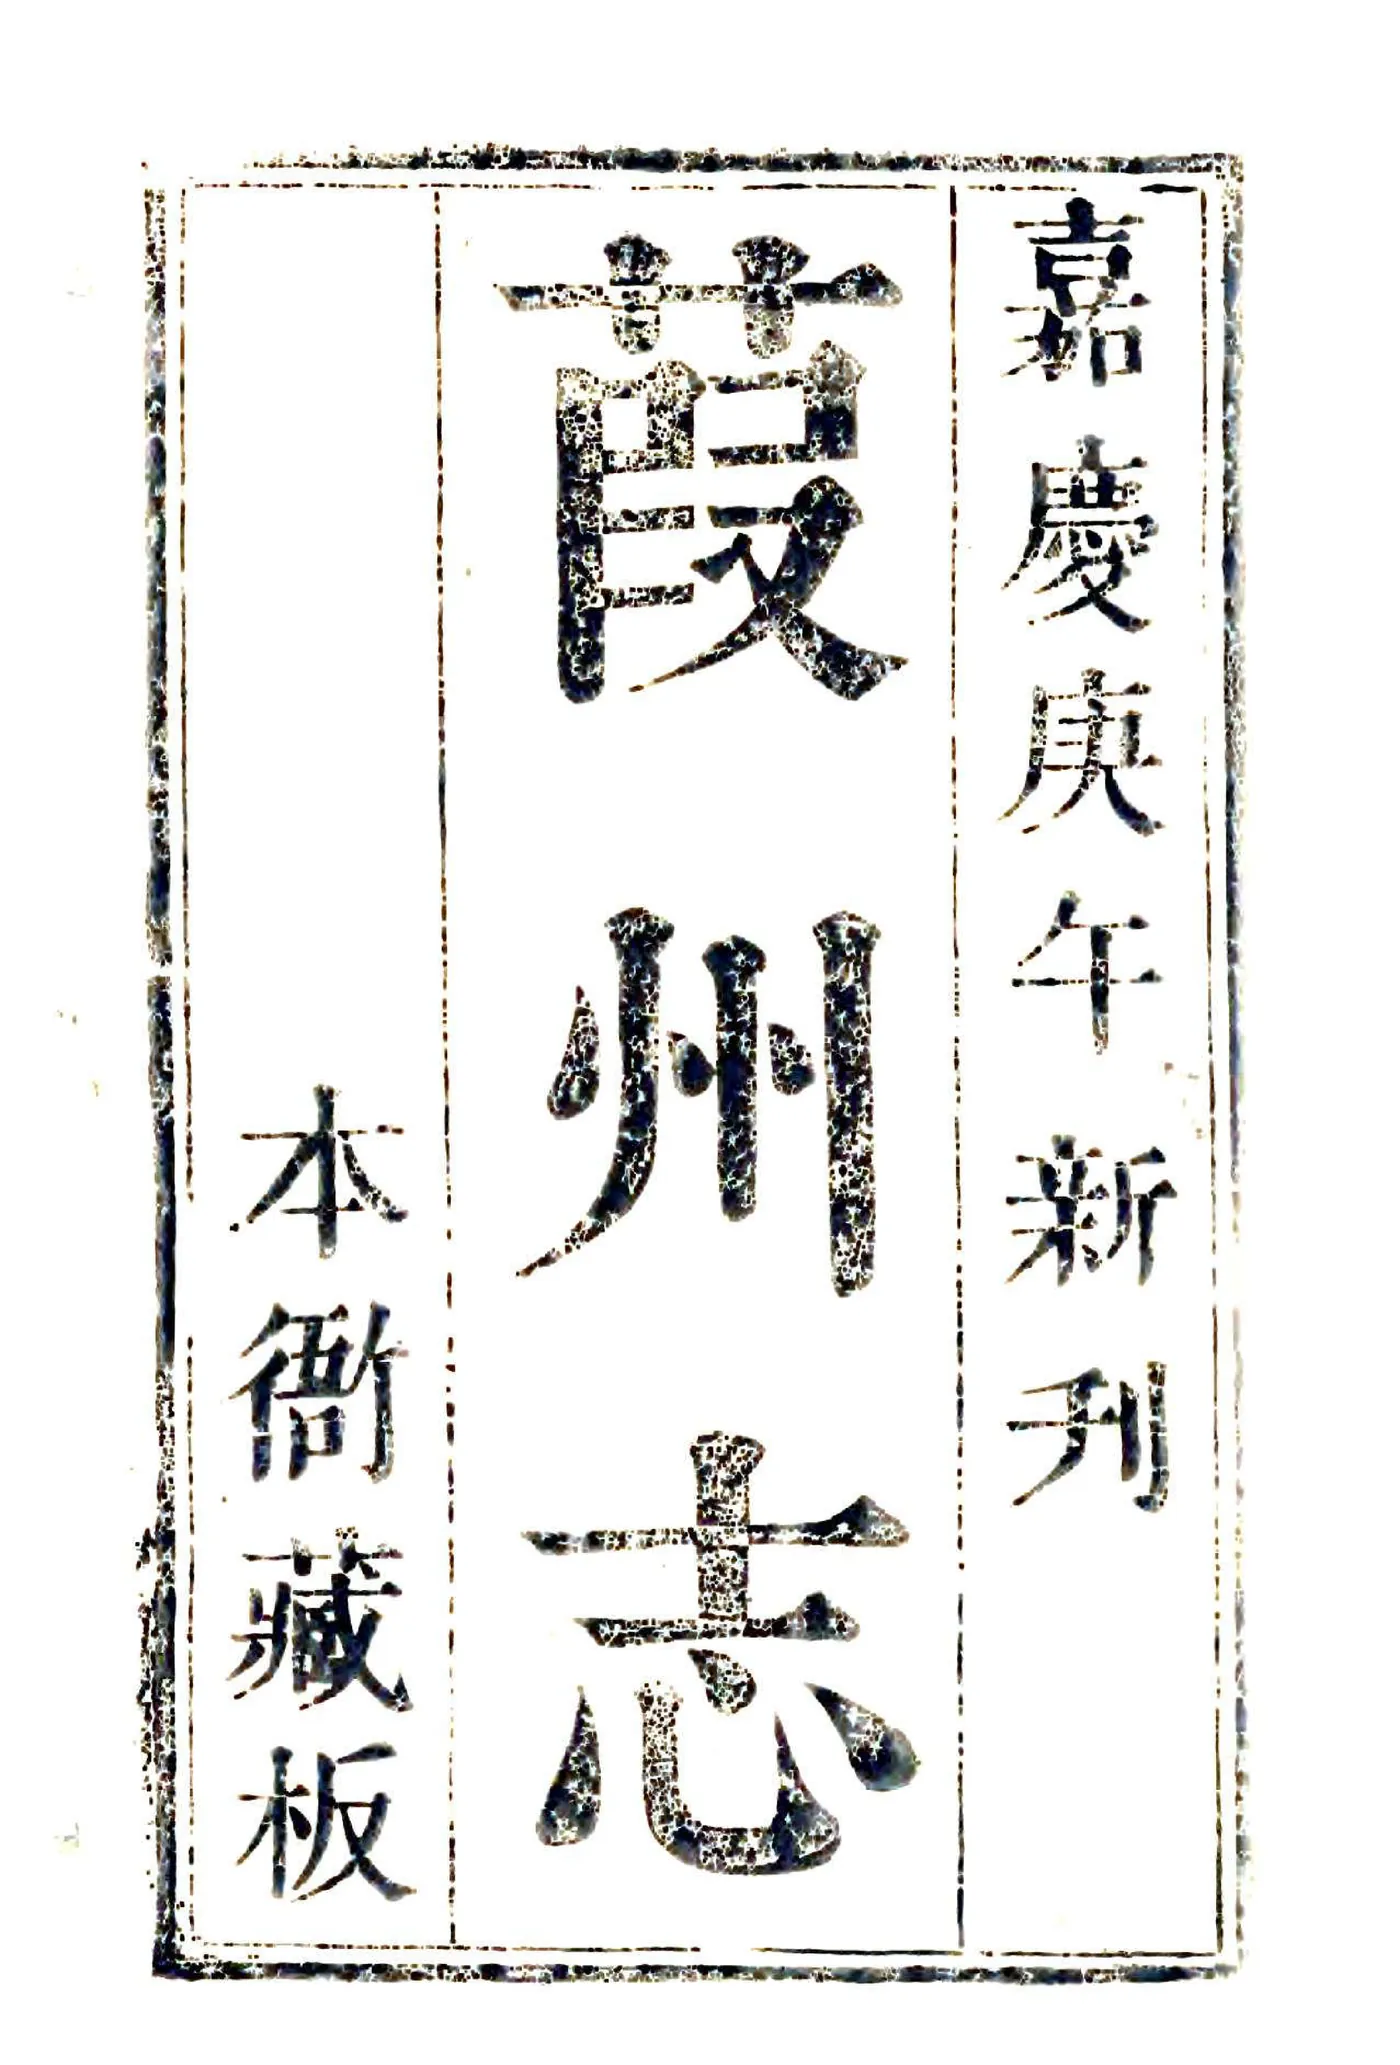 嘉慶庚午新刊
葭州志
本衙藏板